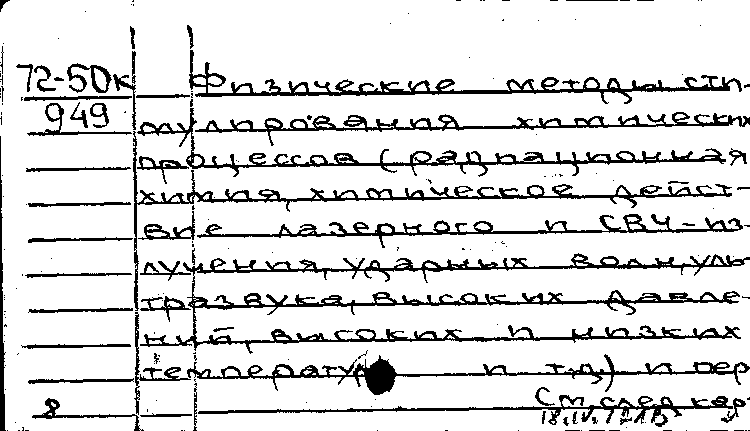 72-50к Физические методы сти-
949 мулирования химических
процессов (радиационная
химия, химическое дейст-
вие лазерного и СВЧ-из-
лучения, ударных волн, уль-
тразвука, высоких давле-
ний, высоких и низких
температур и т.д.) и пер
8 См. след. кар